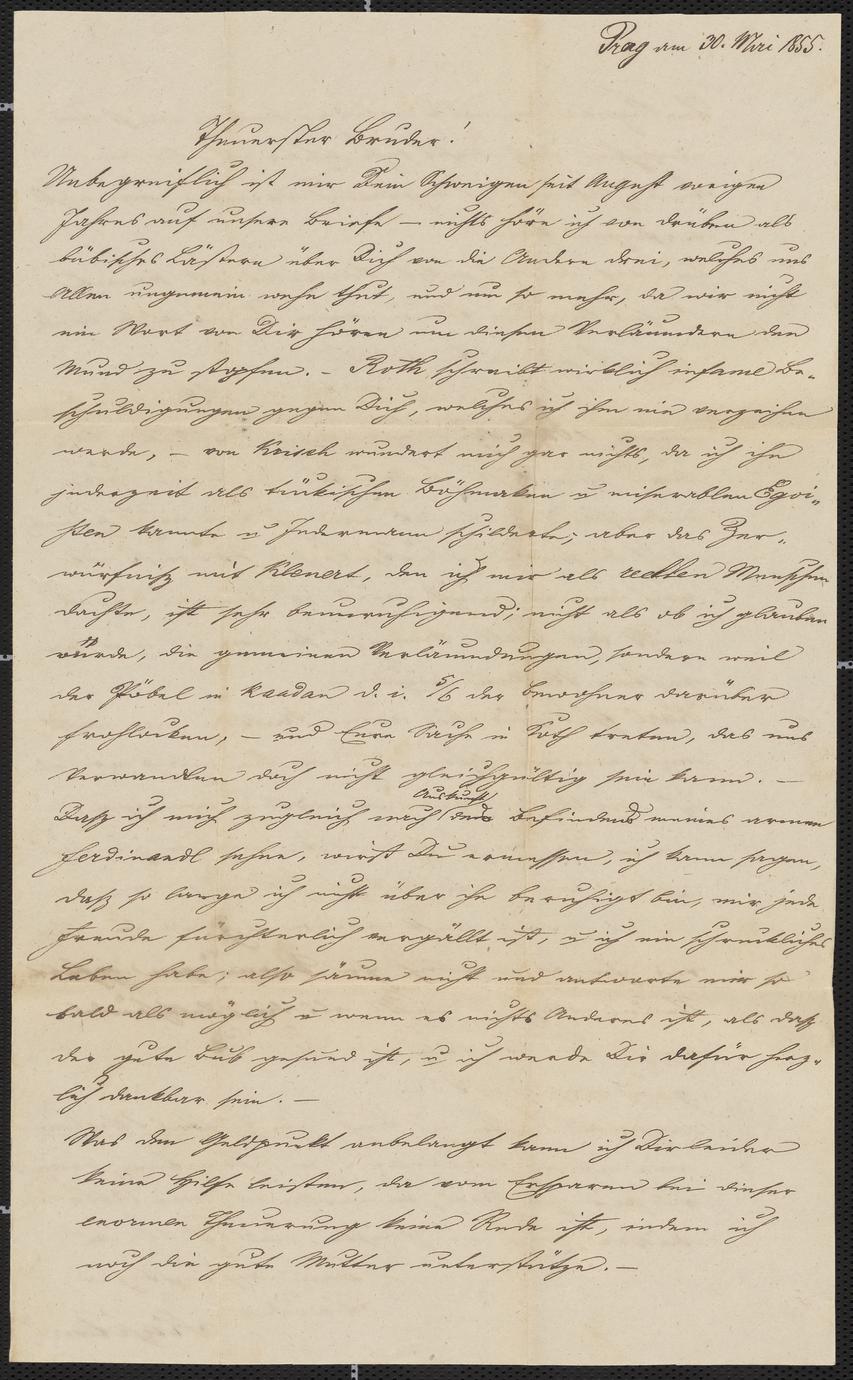 Prag am 30. Mai 1855.
Theuerster Bruder!
Unbegreiflich ist mir Dein Schweigen seit August vorigen
Jahres auf unsere Briefe — nichts höre ich von drüben als
bübisches Lästern über Dich von die Andern drei, welches uns
Allen ungemein wehe thut, und um so mehr, da wir nicht
ein Wort von Dir hören um diesen Verläumdern den
Mund zu stopfen. — Roth schreibt wirklich infame Be-
schuldigungen gegen Dich, welches ich ihm nie verzeihen
werde, — von Krisch wundert mich gar nichts, da ich ihn
jederzeit als tükischen Böhmaken u miserablen Egoi-
sten kannte u Jedermann schilderte; aber das Zer-
würfniß mit Klenert, den ich mir als rechten Menschen
dachte, ist sehr beunruhigend; nicht als ob ich glauben
würde, die gemeinen Verläumdungen, sondern weil
der Pöbel in Kaadan d. i. 5/6 der Bewohner darüber
frohlocken, — und Eure Sache in Koth treten, das uns
Verwandten doch nicht gleichgültig sein kann. —
Daß ich mich zugleich nach Auskunft des Befindens meines armen
Ferdinandl sehne, wirst Du ermessen, ich kann sagen,
daß so lange ich nicht über ihn beruhigt bin, mir jede
Freude fürchterlich vergällt ist, u ich ein schreckliches
Leben habe; also säume nicht und antworte mir so
bald als möglich u wenn es nichts Anderes ist, als daß
der gute Bub gesund ist, u ich werde Dir dafür herz-
lich dankbar sein. —
Was den Geldpunkt anbelangt kann ich Dir leider
keine Hilfe leisten, da vom Ersparen bei dieser
enormen Theuerung keine Rede ist, indem ich
noch die gute Mutter unterstütze. —